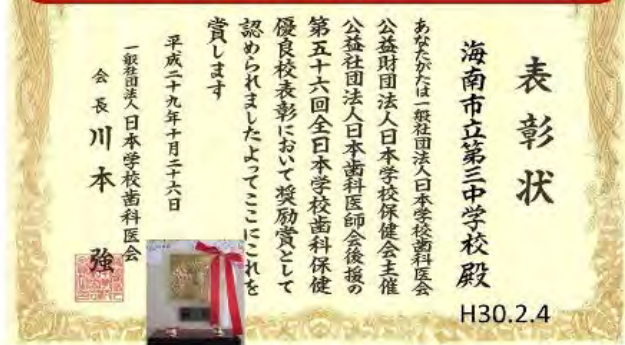 表彰状
海南市立第三中学校殿
あなたがたは一般社団法人日本学校歯科医会
公益財団法人日本学校保健会主催
公益社団法人日本歯科医師会後援の
第五十六回全日本学校歯科保健
優良校表彰において奨励賞として
認められましたよってここにこれを
賞します
平成二十九年十月二十六日
一般社団法人日本学校歯科医会
会長川本強
H30.2.4